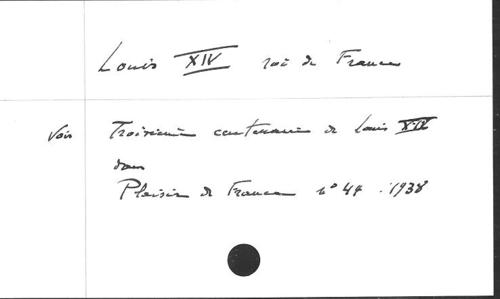 Louis XIV roi de France
Voir Troisième centenaire de Louis XIV
dans
Plaisir de France n° 44 . 1938